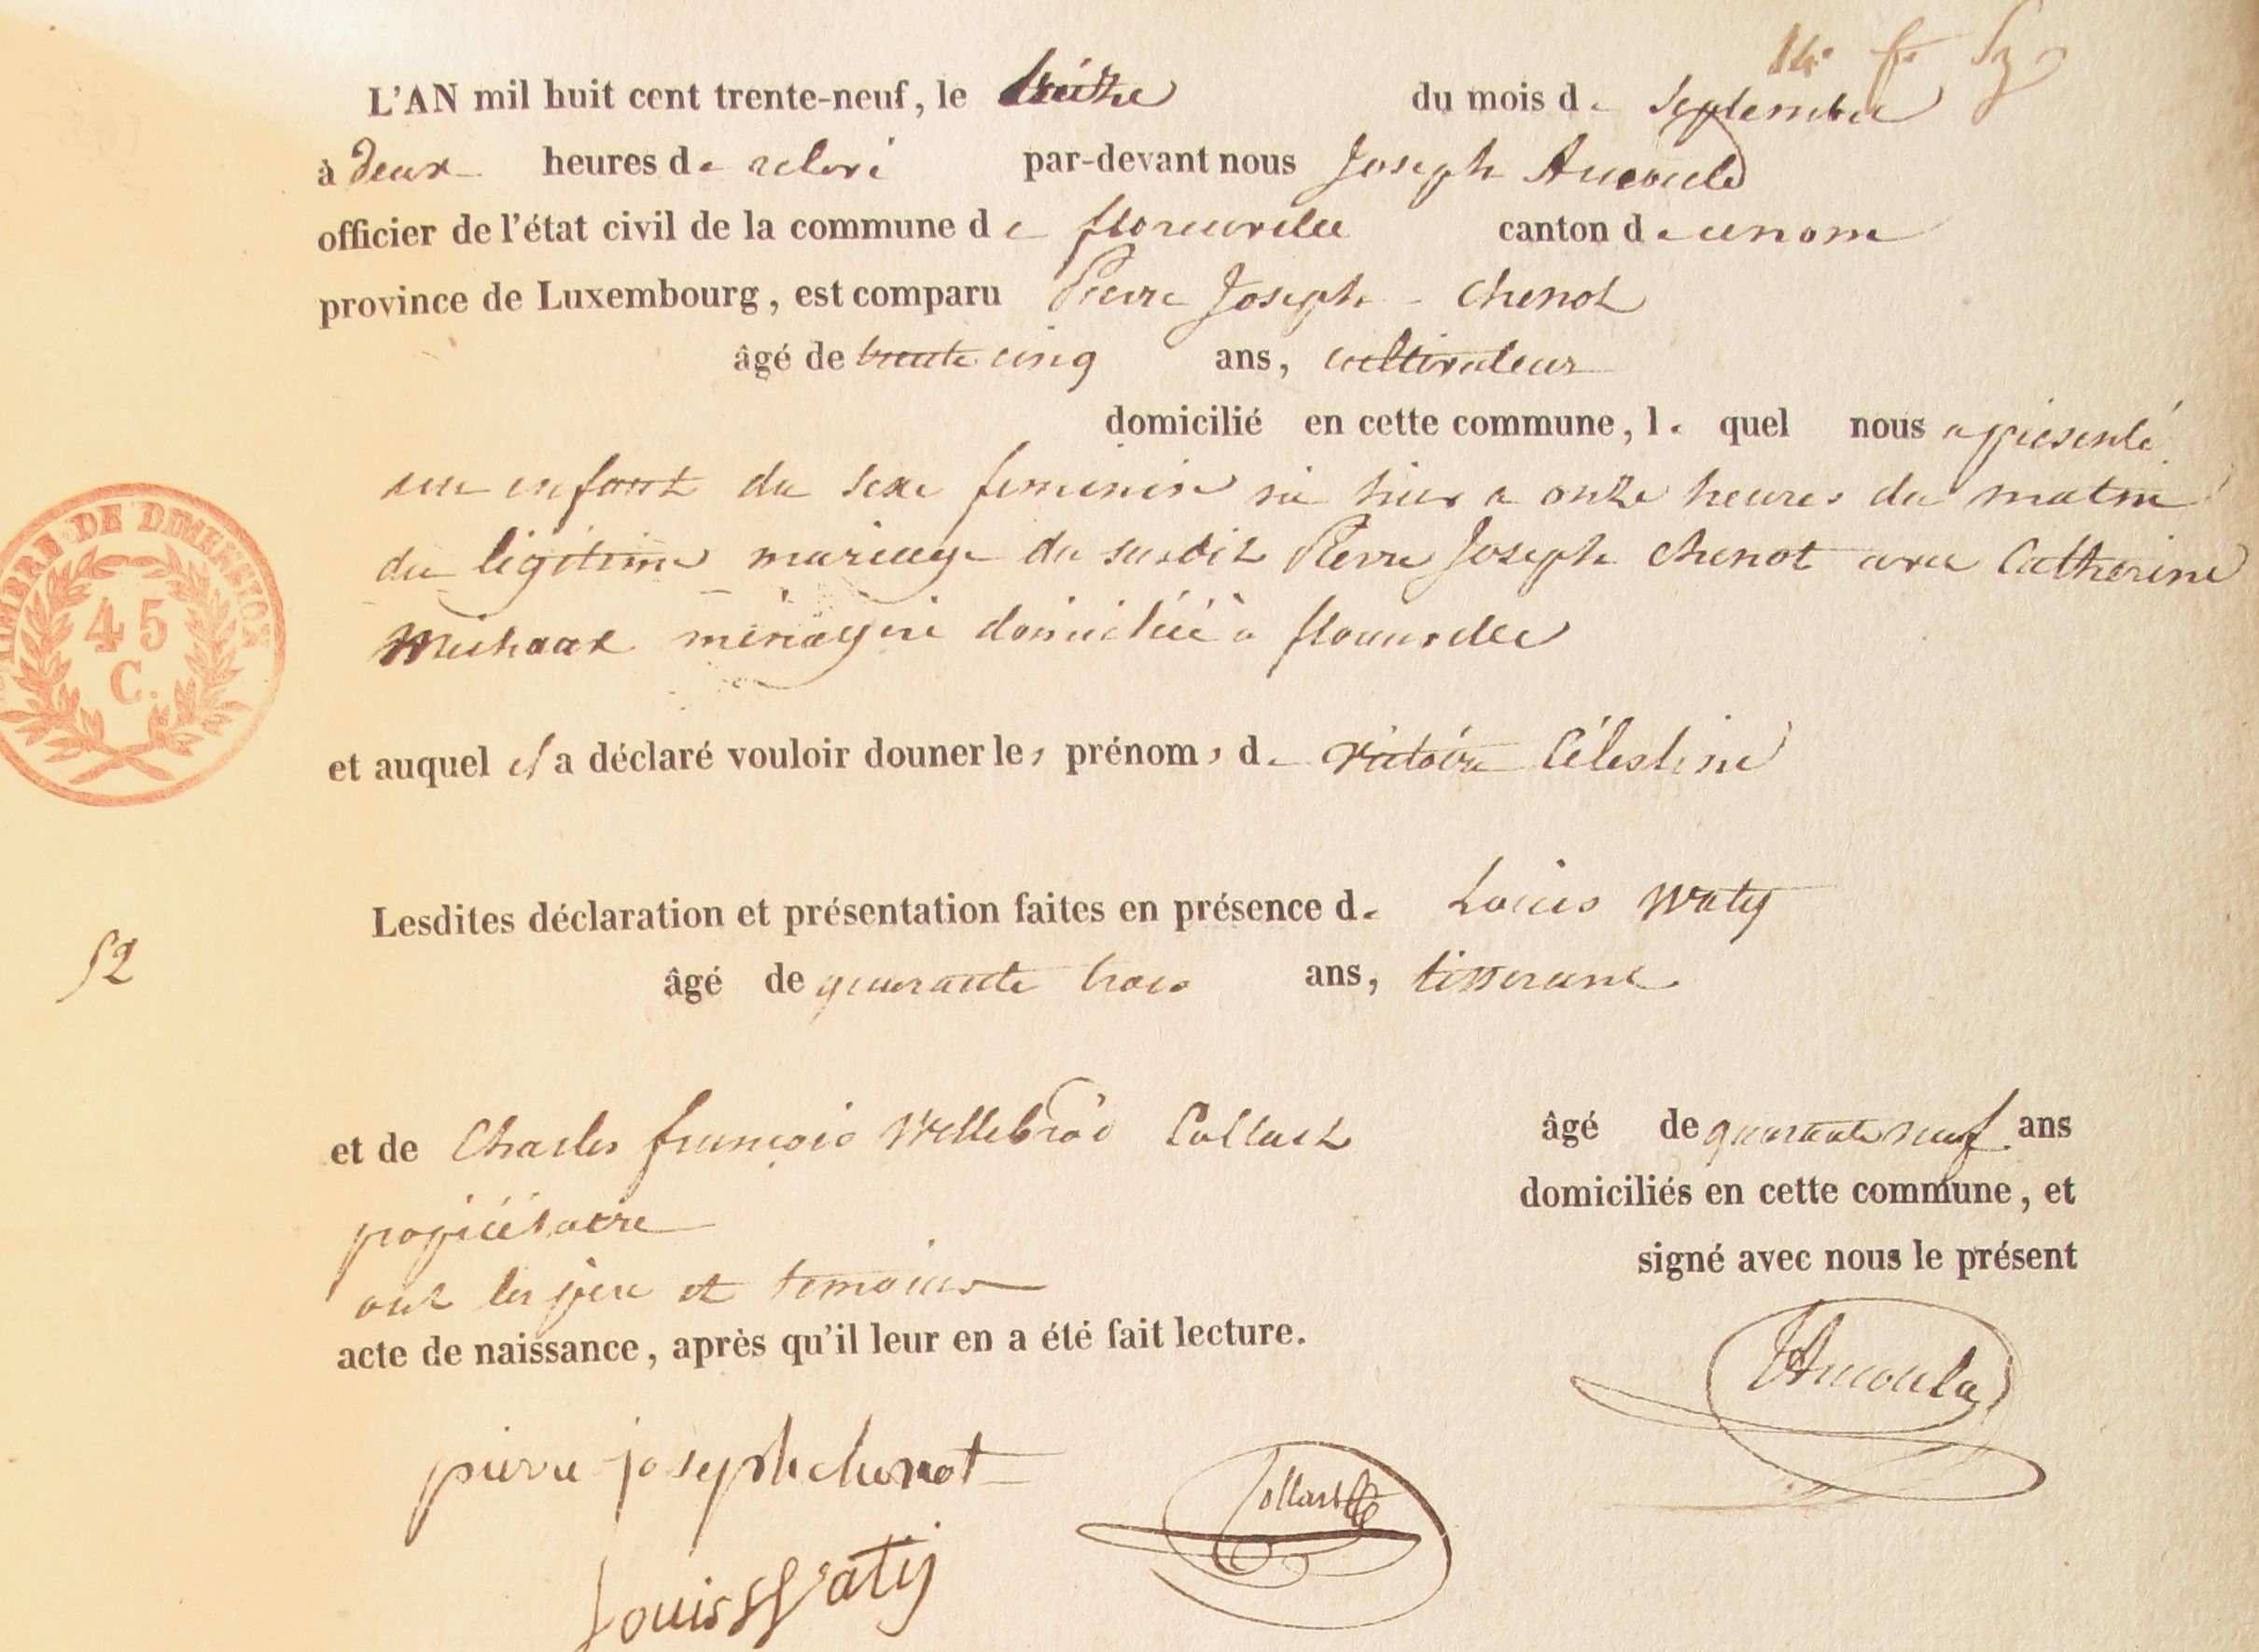 14e f
L'AN mil huit cent trente-neuf, le treize du mois de Septembre
à deux heures de relevé par-devant nous Joseph Arnould
officier de l'état civil de la commune de florenville canton de ce nom
province de Luxembourg, est comparu Pierre Joseph - Chenot
âgé de trente cinq ans, cultivateur
domicilié en cette commune, le quel nous a présenté
un enfant du sexe feminin né hier a onze heures du matin
du légitime mariage du susdit Pierre Joseph Chenot avec Catherine
ménagere domiciliée à florenville
TIMBRE DE DIMENSION
45
C.
et auquel il a déclaré vouloir douner les prénoms de Victoire Célestine
Lesdites déclaration et présentation faites en présence de Louis Waty
52
âgé de quarante trois ans, tisserant
et de Charles françois Willebrod Collart âgé de quarante neuf ans
propriétaire domiciliés en cette commune, et
ont les père et temoins signé avec nous le présent
acte de naissance, après qu'il leur en a été fait lecture.
JArnould
pierre joseph chenot
Collart
Louis Waty